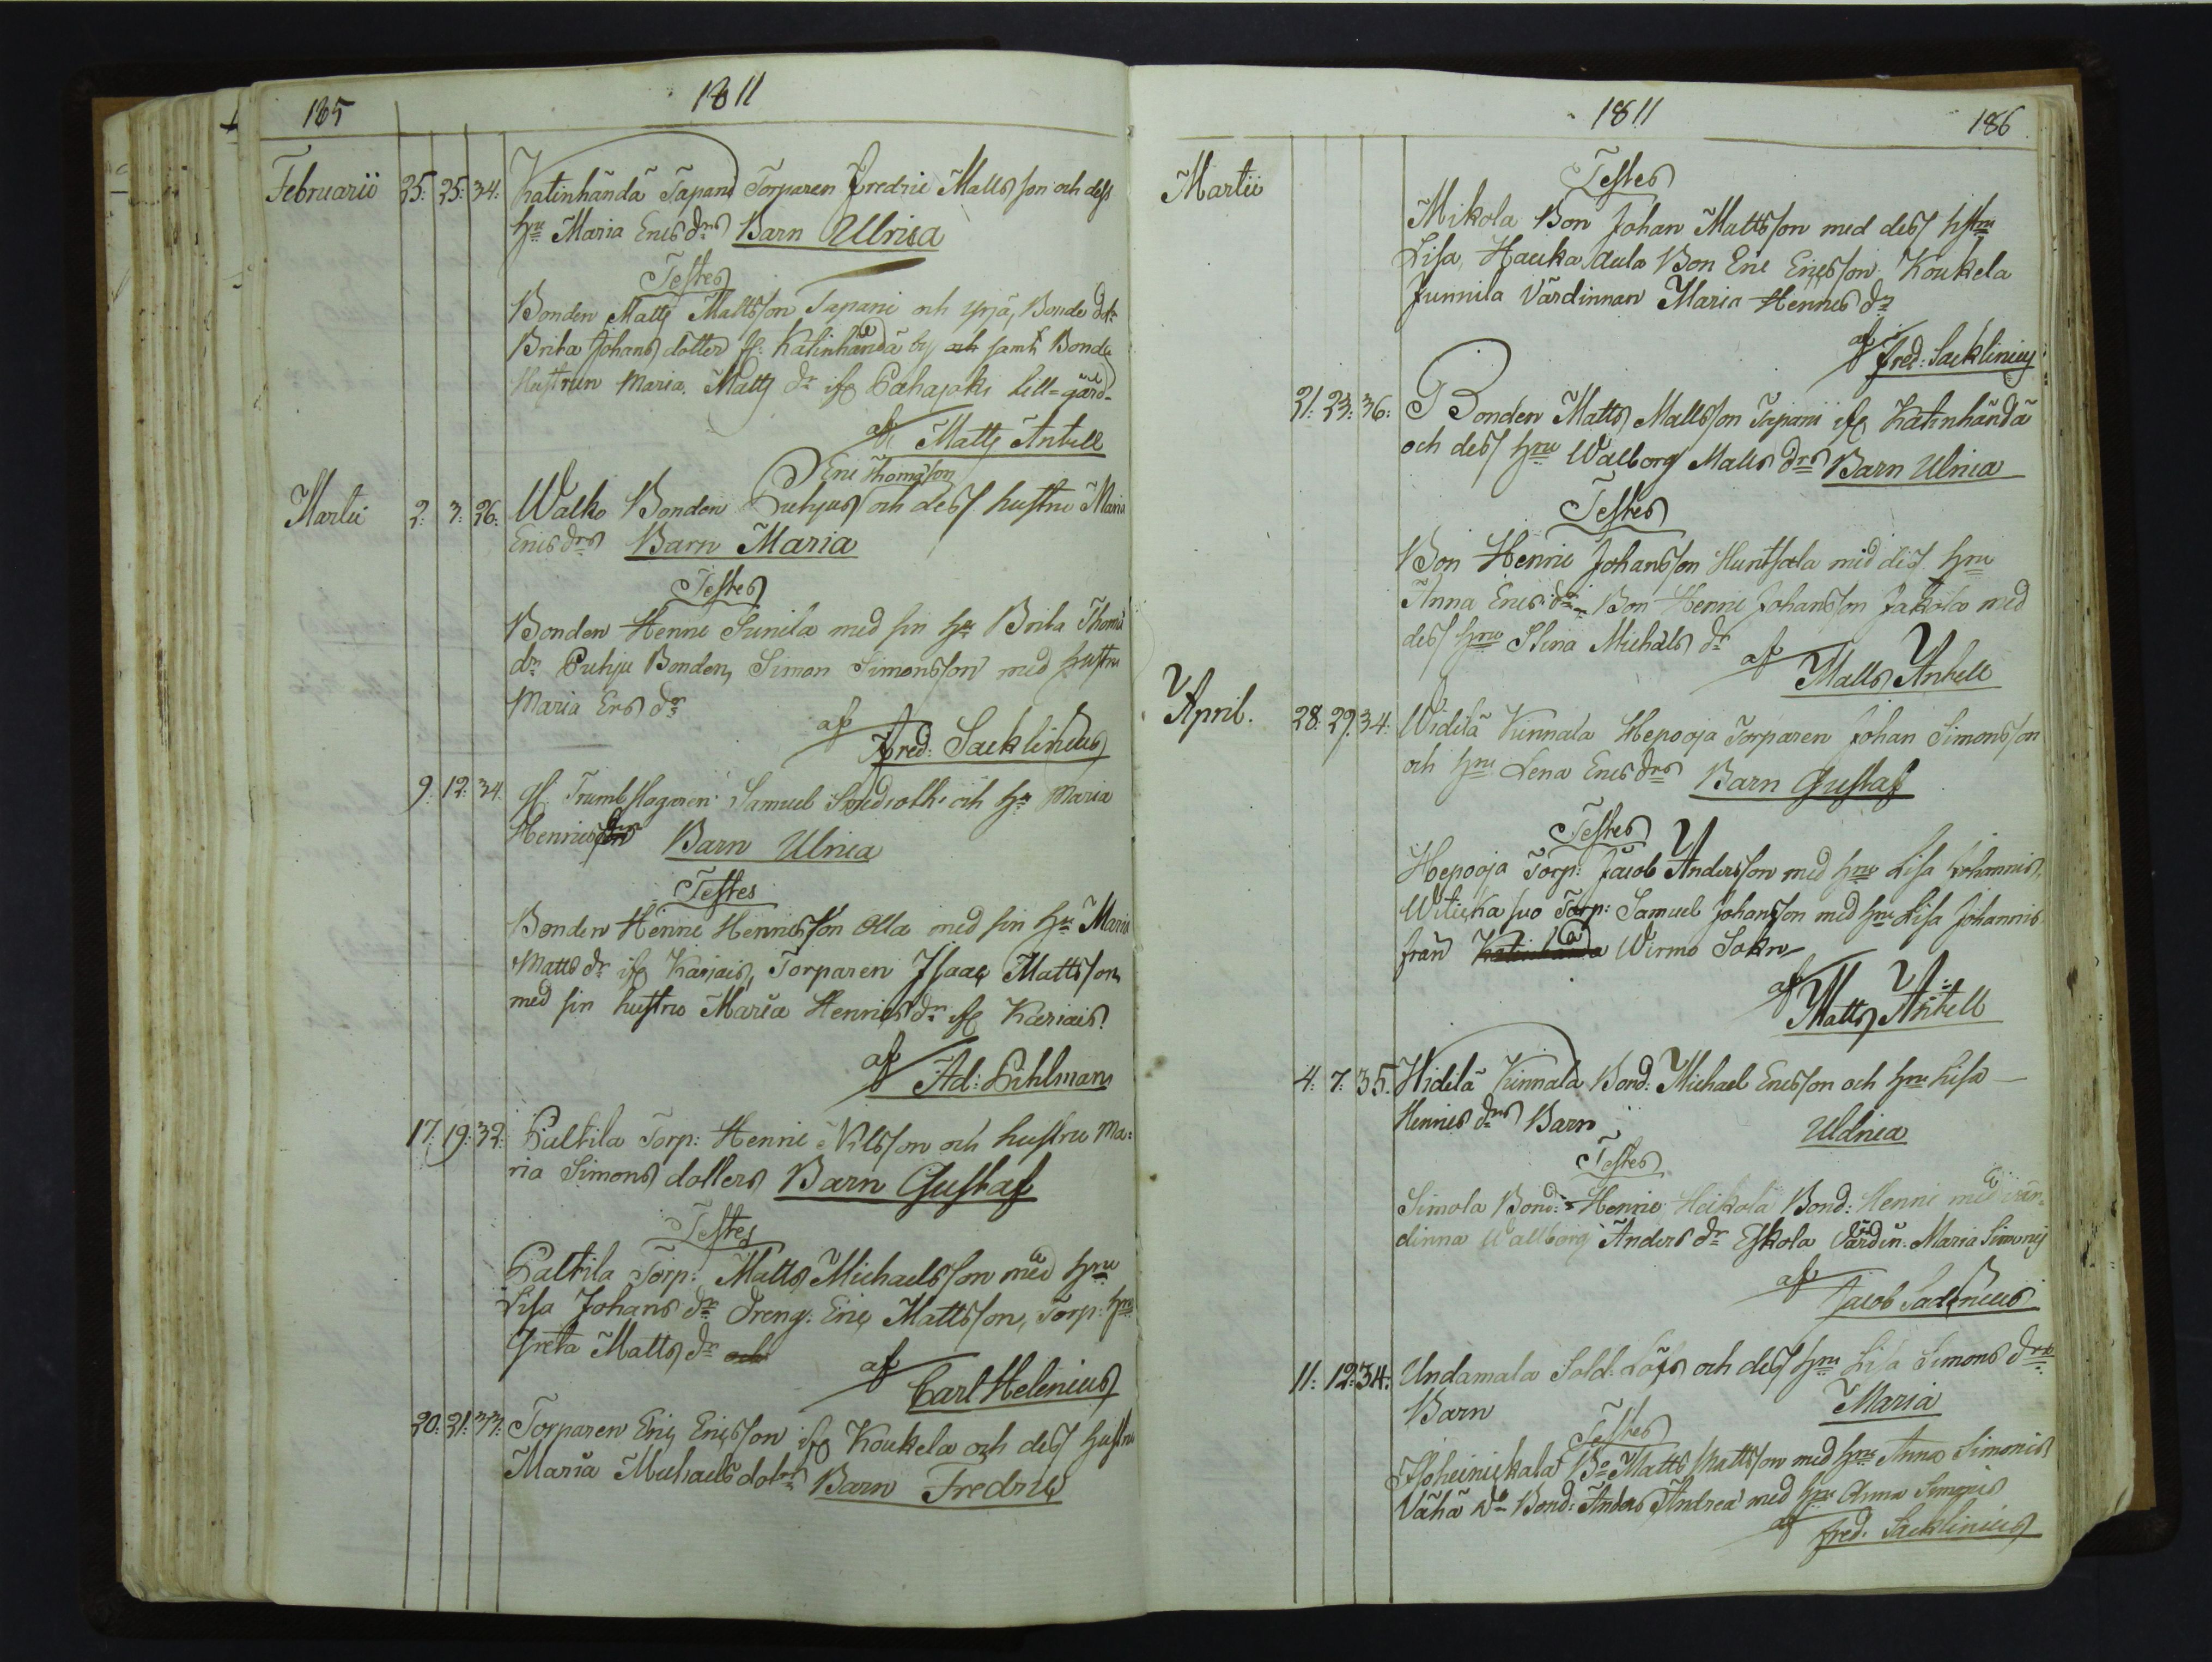 185
1811
Februarii 25: 25: 34: Katinhändä Tapani Torparen Fredric Matts son och dess
hu Maria Erics drs Barn Ulrica
Testes
Bonden Matts Mattsson Tapani och yrjä, Bonde dotr
Brita Johans dotter if: Katinhändä by och samt Bonde
Hustrun Maria Matts dr ifr Pahajoki Lill-gård
af Matts Antell
Eric Thomsson
Martii 2: 3: 26. Walko Bonden Puhjus och dess hustru Maria
Erics drs Barn Maria
Testes
Bonden Henric Sunila med sin hu Brita Thoms
dr Puhju Bonden, Simon Simonsson med hustru
Maria Ers dr
af Fred: Sacklinius
9: 12: 34 if Trumslagaren Samuel och hu Maria
Henrics drs Barn Ulrica
Testes
Bonden Henric Henricsson Olla med sin hu Maria
Matts dr ifr Karjais, Torparen Isaac Mattsson
med sin hustru Maria Henrics dr ifr Kariais.
af Ad: Lihlman
17: 19: 32: Paltila Torp: Henric Nilsson och hustru Ma:
ria Simons dotters Barn Gustaf
Testes
Paltila Torp: Matts Michaelsson med hru
Lisa Johans dr Dreng: Eric Mattsson, Torp: hru
Greta Matts dr och
af Carl Helenius
20: 21: 33: Torparen Eric Ericsson ifr Koukela och dess hustru
Maria Michaels dotrs Barn Fredric
1811
186
Martii
Testes
Mikola Bon Johan Mattsson med dess hstru
Lisa, Hauka aula Bon Eric Ericsson Koukela
Junnila Värdinnan Maria Henrics dr
af Fred: Sacklinius
21: 23: 36: Bonden Matts Mattsson Tapani ifr Katinhändä
och dess hru Walborg Matts drs Barn Ulrica
Testes
Bon Henric Johansson Huntsala med des hru
Anna Erics dr Bon Henric Johansson Jakola med
dess hru Stina Michels dr
af Matts Antell
April. 28: 29: 34. Widilä Kinnala Hepooja Torparen Johan Simonsson
och hru Lena Erics drs Barn Gustaf
Testes
Hepooja Torp: Jacob Andersson med hru Lisa Johannis,
suo Torp: Samuel Johansson med hru Lisa Johannis
från Katinhändä Wirmo Sokn
af Matts Antell
4: 7: 35. Widilä Kinnala Bond: Michael Ericsson och hru Lisa
Henrics drs Barn Uldrica
Testes
Simola Bond: Henric Heikola Bond: Henric med vär
dinna Wallborg Anders dr Eskola Värdin: Maria Simonis
af Jacob Sadenius
11: 12: 34: Undamala Sold: Löfs och dess hru Lisa Simons drs
Barn Maria
Testes
Bo Matts Mattsson med hru Anna Simonis
Vähä do Bond: Anders Andreæ med hru Anna Simonis
af Fred. Sacklinius